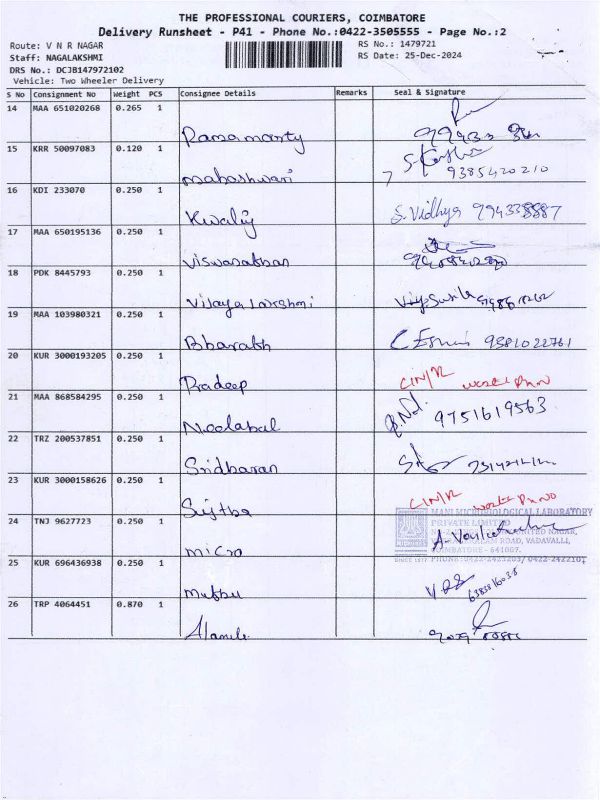 THE PROFESSIONAL COURIERS, COIMBATORE
Delivery Runsheet - P41 - Phone No.:0422-3505555 - Page No.:2
Route: V N R NAGAR
RS No.: 1479721
Staff: NAGALAKSHMI
RS Date: 25-Dec-2024
DRS No.: DCJB147972102
Vehicle: Two Wheeler Delivery
S No Consignment No Weight PCS Consignee Details Remarks Seal & Signature
14 MAA 651020268 0.265 1
Ramamoorty
15 KRR 50097083 0.120 1
Mahashwari 9385420210
16 KDI 233070 0.250 1
Kwaliy S. Vidhya 994338887
17 MAA 650195136 0.250 1
Viswanathan
18 PDK 8445793 0.250 1
Vijaya Lakshmi
19 MAA 103980321 0.250 1
Bharath 9381022761
20 KUR 3000193205 0.250 1
Pradeep
21 MAA 868584295 0.250 1
Neelabal 9751619563
22 TRZ 200537851 0.250 1
Sridharan
23 KUR 3000158626 0.250 1
Sujitha
24 TNJ 9627723 0.250 1
MANI MICROBIOLOGICAL LABORATORY
PRIVATE LIMITED
NAGAR,
ROAD, VADAVALLI,
COIMBATORE - 641007.
micro
SINCE 1977 PHONE: 0422-2423203/ 0422-2422101
25 KUR 696436938 0.250 1
Muthu
26 TRP 4064451 0.870 1